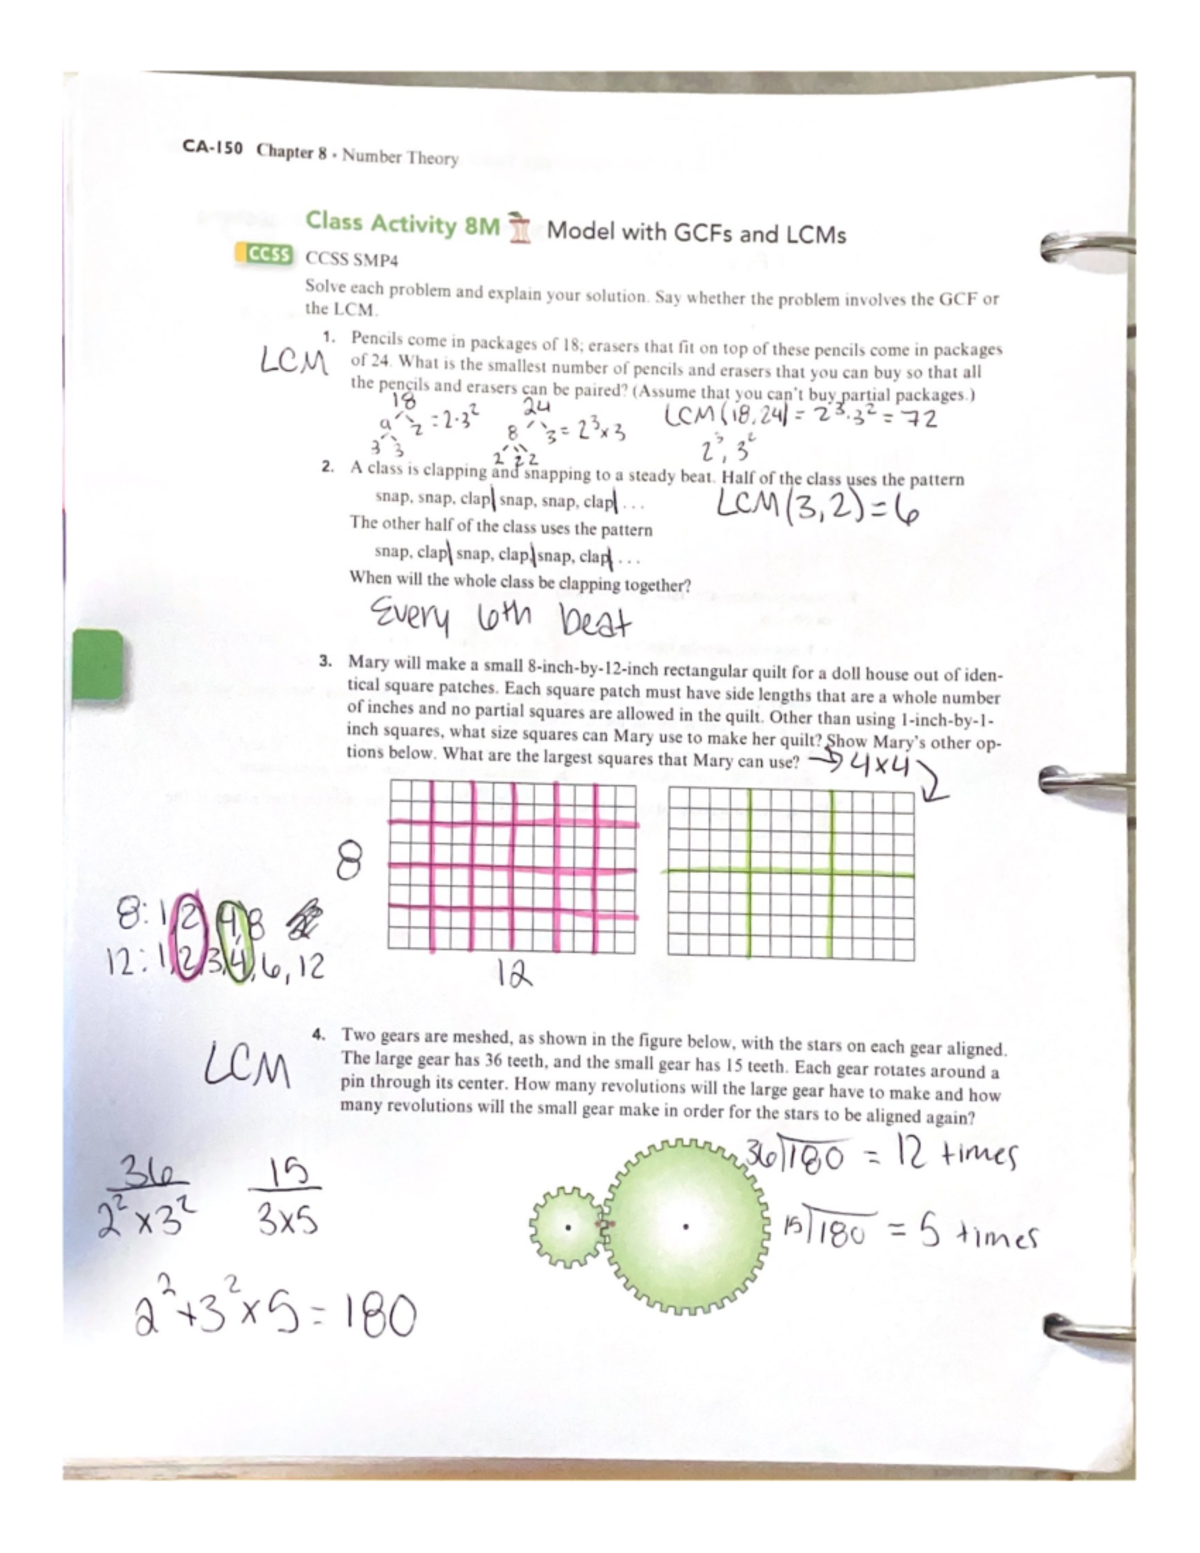 CA-150 Chapter 8 • Number Theory
Class Activity 8M Model with GCFs and LCMs
CCSS CCSS SMP4
Solve each problem and explain your solution. Say whether the problem involves the GCF or
the LCM.
1. Pencils come in packages of 18; erasers that fit on top of these pencils come in packages
LCM of 24. What is the smallest number of pencils and erasers that you can buy so that all
the pencils and erasers can be paired? (Assume that you can't buy partial packages.)
18 24 LCM(18,24) = 2³·3² = 72
9 2 = 2·3² 8 3 = 2³x3
3 3 2 2 2 2³, 3²
2. A class is clapping and snapping to a steady beat. Half of the class uses the pattern
snap, snap, clap| snap, snap, clap| . . . LCM(3,2)=6
The other half of the class uses the pattern
snap, clap| snap, clap,|snap, clap| . . .
When will the whole class be clapping together?
Every 6th beat
3. Mary will make a small 8-inch-by-12-inch rectangular quilt for a doll house out of iden-
tical square patches. Each square patch must have side lengths that are a whole number
of inches and no partial squares are allowed in the quilt. Other than using 1-inch-by-1-
inch squares, what size squares can Mary use to make her quilt? Show Mary's other op-
tions below. What are the largest squares that Mary can use? → 4x4
8
8: 1,2,4,8
12: 1,2,3,4,6,12
12
4. Two gears are meshed, as shown in the figure below, with the stars on each gear aligned.
LCM The large gear has 36 teeth, and the small gear has 15 teeth. Each gear rotates around a
pin through its center. How many revolutions will the large gear have to make and how
many revolutions will the small gear make in order for the stars to be aligned again?
36 15 36)180 = 12 times
2²x3² 3x5 15)180 = 5 times
2²+3²x5 = 180